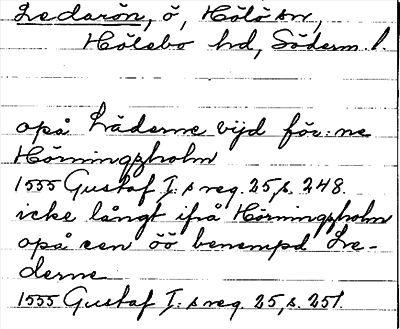 Ledarön, ö, Hölö sn,
Hölebo hd, Söderm. l.
opå Lräderne vijd för:ne
Hörningzholm
1555 Gustaf I:s reg. 25, s. 248.
icke långt ifrå Hörningzholm
opå een öö benempd Lre-
derne
1555 Gustaf I:s reg. 25, s. 251.